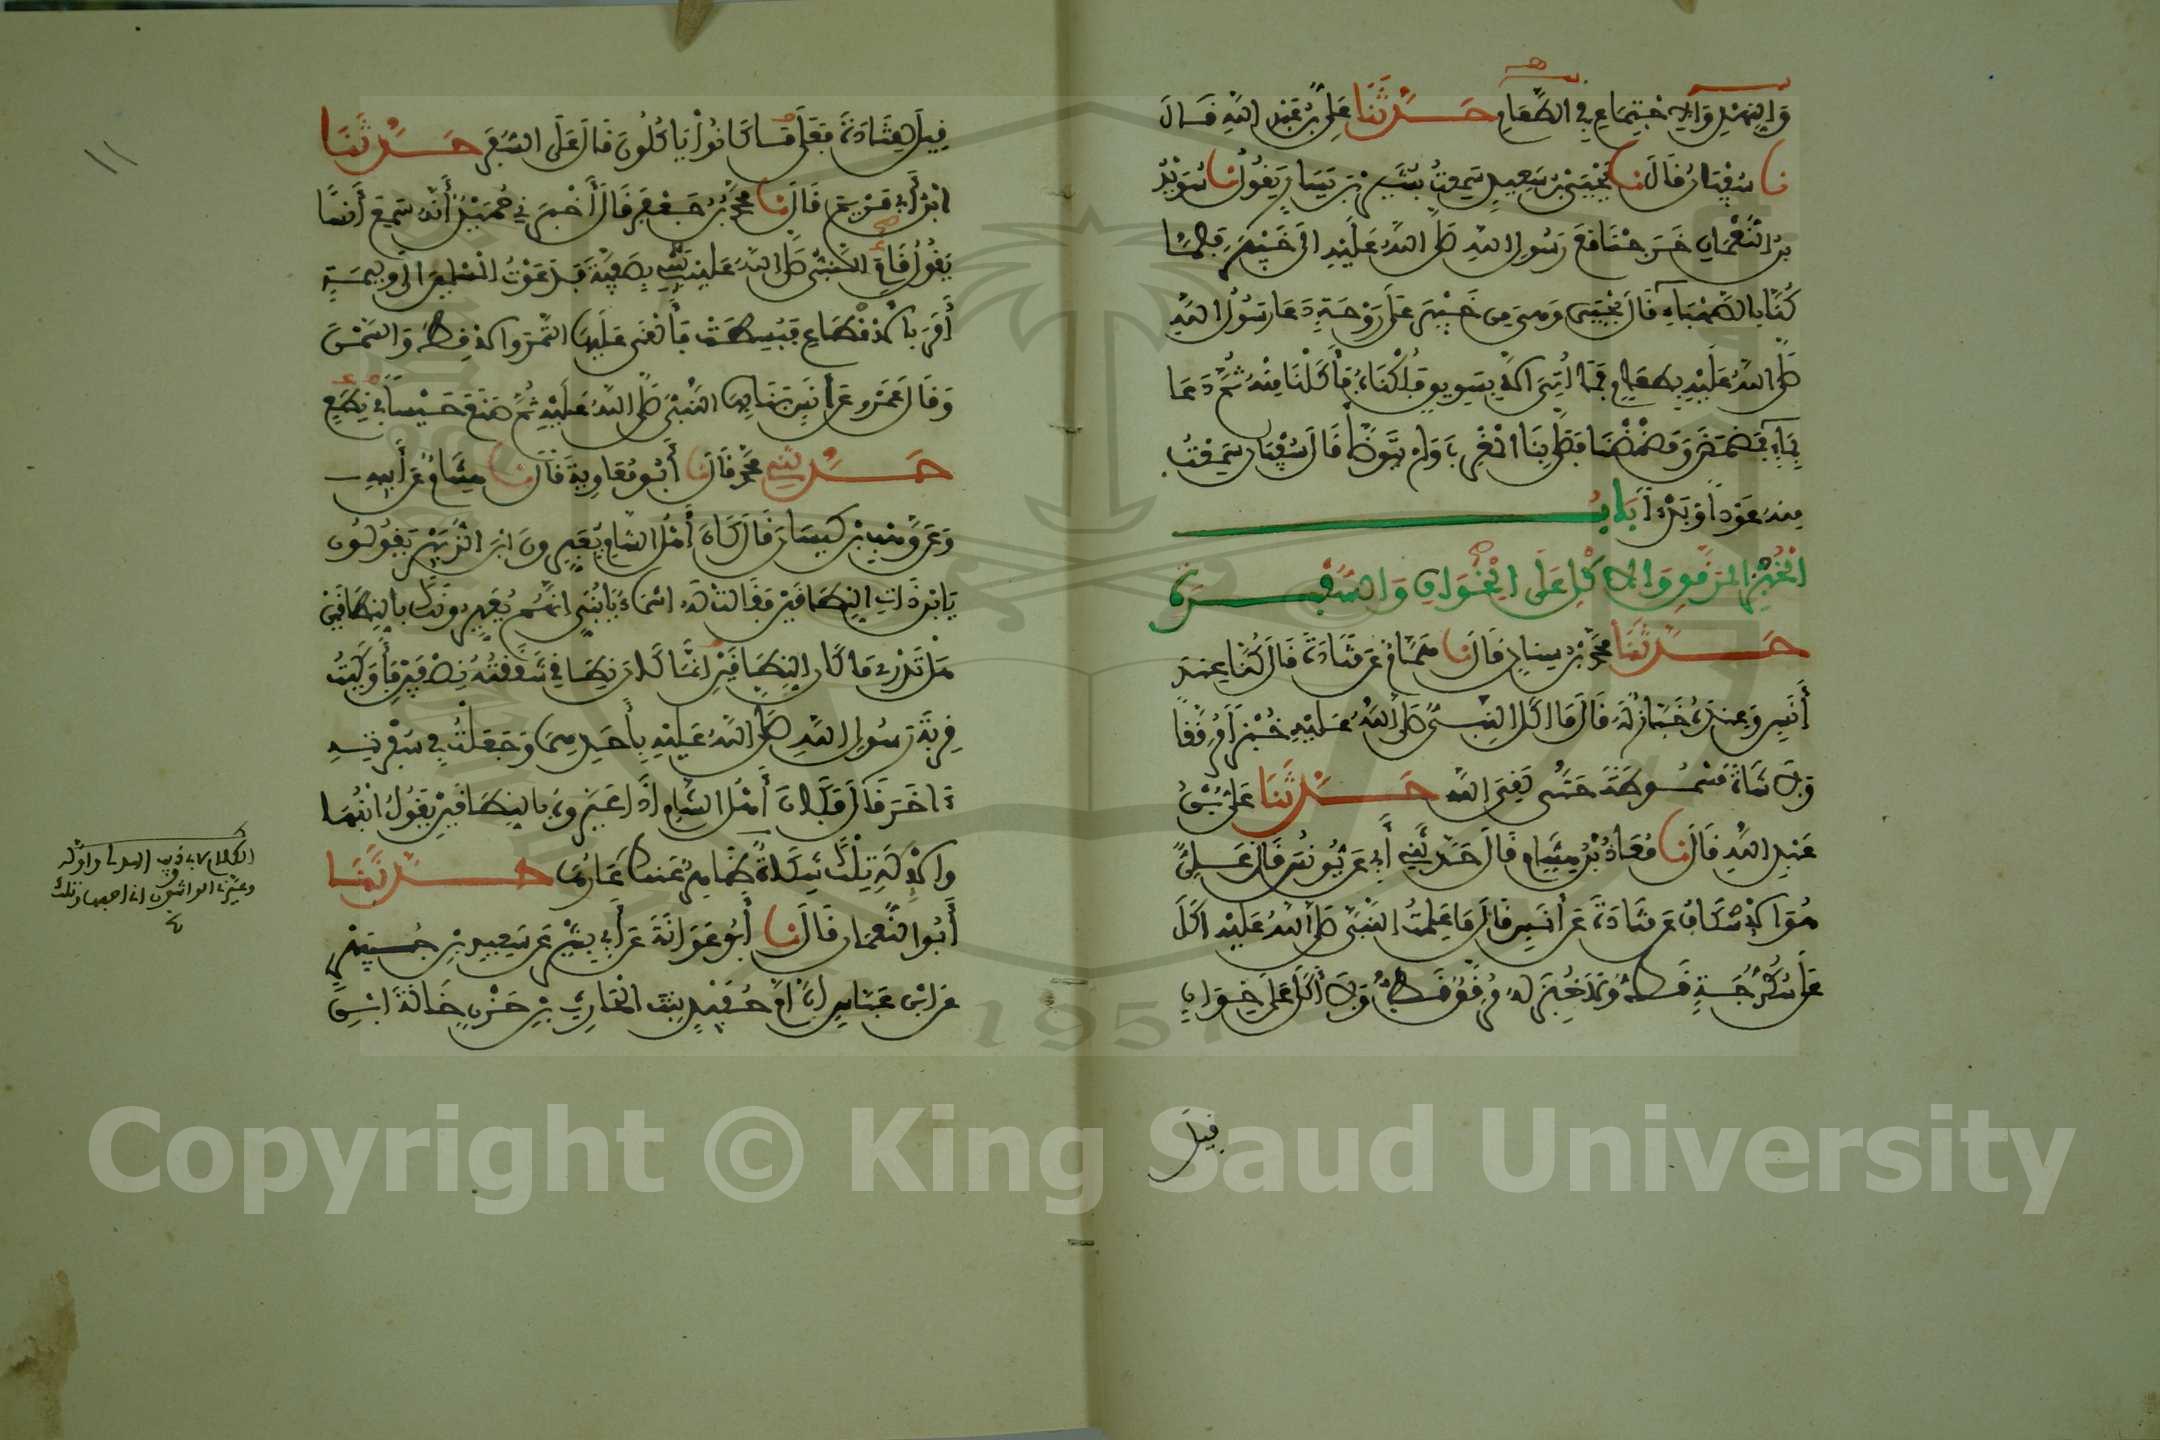 وَالنِّهْدِ وَالاِجْتِمَاعِ فِي الطَّعَامِ حَدَّثَنَا عَلِيُّ بْنُ عَبْدِ اللَّهِ قَالَ
نا سُفْيَانُ قَالَ نا يَحْيَى بْنُ سَعِيدٍ سَمِعْتُ بُشَيْرَ بْنَ يَسَارٍ يَقُولُ نا سُوَيْدُ
بْنُ النُّعْمَانِ خَرَجْنَا مَعَ رَسُولِ اللَّهِ صَلَّى اللَّهُ عَلَيْهِ إِلَى خَيْبَرَ فَلَمَّا
كُنَّا بِالصَّهْبَاءِ قَالَ يَحْيَى وَهِيَ مِن خَيْبَرَ عَلَى رَوْحَةٍ دَعَا رَسُولُ اللَّهِ
صَلَّى اللَّهُ عَلَيْهِ بِطَعَامٍ فَمَا أُتِيَ إِلَّا بِسَوِيقٍ فَلُكْنَاهُ فَأَكَلْنَا مِنْهُ ثُمَّ دَعَا
بِمَاءٍ فَمَضْمَضَ وَمَضْمَضْنَا فَصَلَّى بِنَا الْمَغْرِبَ وَلَمْ يَتَوَضَّأْ قَالَ سُفْيَانُ سَمِعْتُ
مِنْهُ عَوْدًا وَبَدْءًا بَابُ
الْخُبْزِ الْمُرَقَّقِ وَالأَكْلِ عَلَى الْخُوَانِ وَالسُّفْرَةِ
حَدَّثَنَا مُحَمَّدُ بْنُ سِنَانٍ قَالَ نا هَمَّامٌ عَنْ قَتَادَةَ قَالَ كُنَّا عِنْدَ
أَنَسٍ وَعِنْدَهُ خَبَّازٌ لَهُ قَالَ مَا أَكَلَ النَّبِيُّ صَلَّى اللَّهُ عَلَيْهِ خُبْزًا مُرَقَّقًا
وَلَا شَاةً مَسْمُوطَةً حَتَّى لَقِيَ اللَّهَ حَدَّثَنَا عَلِيُّ بْنُ
عَبْدِ اللَّهِ قَالَ نا مُعَاذُ بْنُ هِشَامٍ قَالَ حَدَّثَنِي أَبِي عَنْ يُونُسَ قَالَ عَلِيٌّ
هُوَ الإِسْكَافُ عَنْ قَتَادَةَ عَنْ أَنَسٍ قَالَ مَا عَلِمْتُ النَّبِيَّ صَلَّى اللَّهُ عَلَيْهِ أَكَلَ
عَلَى سُكُرُّجَةٍ قَطُّ وَلَا خُبِزَ لَهُ مُرَقَّقٌ قَطُّ وَلَا أَكَلَ عَلَى خِوَانٍ
قِيلَ
قِيلَ لِقَتَادَةَ فَعَلَى مَا كَانُوا يَأْكُلُونَ قَالَ عَلَى السُّفَرِ حَدَّثَنَا
ابْنُ أَبِي مَرْيَمَ قَالَ نا مُحَمَّدُ بْنُ جَعْفَرٍ قَالَ أَخْبَرَنِي حُمَيْدٌ أَنَّهُ سَمِعَ أَنَسًا
يَقُولُ قَامَ النَّبِيُّ صَلَّى اللَّهُ عَلَيْهِ يَبْنِي بِصَفِيَّةَ فَدَعَوْتُ الْمُسْلِمِينَ إِلَى وَلِيمَتِهِ
أَمَرَ بِالأَنْطَاعِ فَبُسِطَتْ فَأُلْقِيَ عَلَيْهَا التَّمْرُ وَالأَقِطُ وَالسَّمْنُ
وَقَالَ عَمْرٌو عَنْ أَنَسٍ بَنَى بِهَا النَّبِيُّ صَلَّى اللَّهُ عَلَيْهِ ثُمَّ صَنَعَ حَيْسًا فِي نِطَعٍ
حَدَّثَنِي مُحَمَّدٌ قَالَ نا أَبُو مُعَاوِيَةَ قَالَ نا هِشَامٌ عَنْ أَبِيهِ
وَعَنْ وَهْبِ بْنِ كَيْسَانَ قَالَ كَانَ أَهْلُ الشَّامِ يُعَيِّرُونَ ابْنَ الزُّبَيْرِ يَقُولُونَ
يَا ابْنَ ذَاتِ النِّطَاقَيْنِ فَقَالَتْ لَهُ أَسْمَاءُ يَا بُنَيِّ إِنَّهُمْ يُعَيِّرُونَكَ بِالنِّطَاقَيْنِ
هَلْ تَدْرِي مَا كَانَ النِّطَاقَيْنِ إِنَّمَا كَانَ نِطَاقِي شَقَقْتُهُ نِصْفَيْنِ فَأَوْكَيْتُ
قِرْبَةَ رَسُولِ اللَّهِ صَلَّى اللَّهُ عَلَيْهِ بِأَحَدِهِمَا وَجَعَلْتُ فِي سُفْرَتِهِ
آخَرَ قَالَ فَكَانَ أَهْلُ الشَّامِ إِذَا عَيَّرُوهُ بِالنِّطَاقَيْنِ يَقُولُ إِيهًا
وَالإِلَهِ تِلْكَ شَكَاةٌ ظَاهِرٌ عَنْكَ عَارُهَا حَدَّثَنَا
أَبُو النُّعْمَانِ قَالَ نا أَبُو عَوَانَةَ عَنْ أَبِي بِشْرٍ عَنْ سَعِيدِ بْنِ جُبَيْرٍ
عَنِ ابْنِ عَبَّاسٍ أَنَّ أُمَّ حُفَيْدٍ بِنْتَ الْحَارِثِ بْنِ حَزْنٍ خَالَةَ ابْنِ
١١
وعيرها الواشون اني احبها وتلك
Copyright © King Saud University
1957